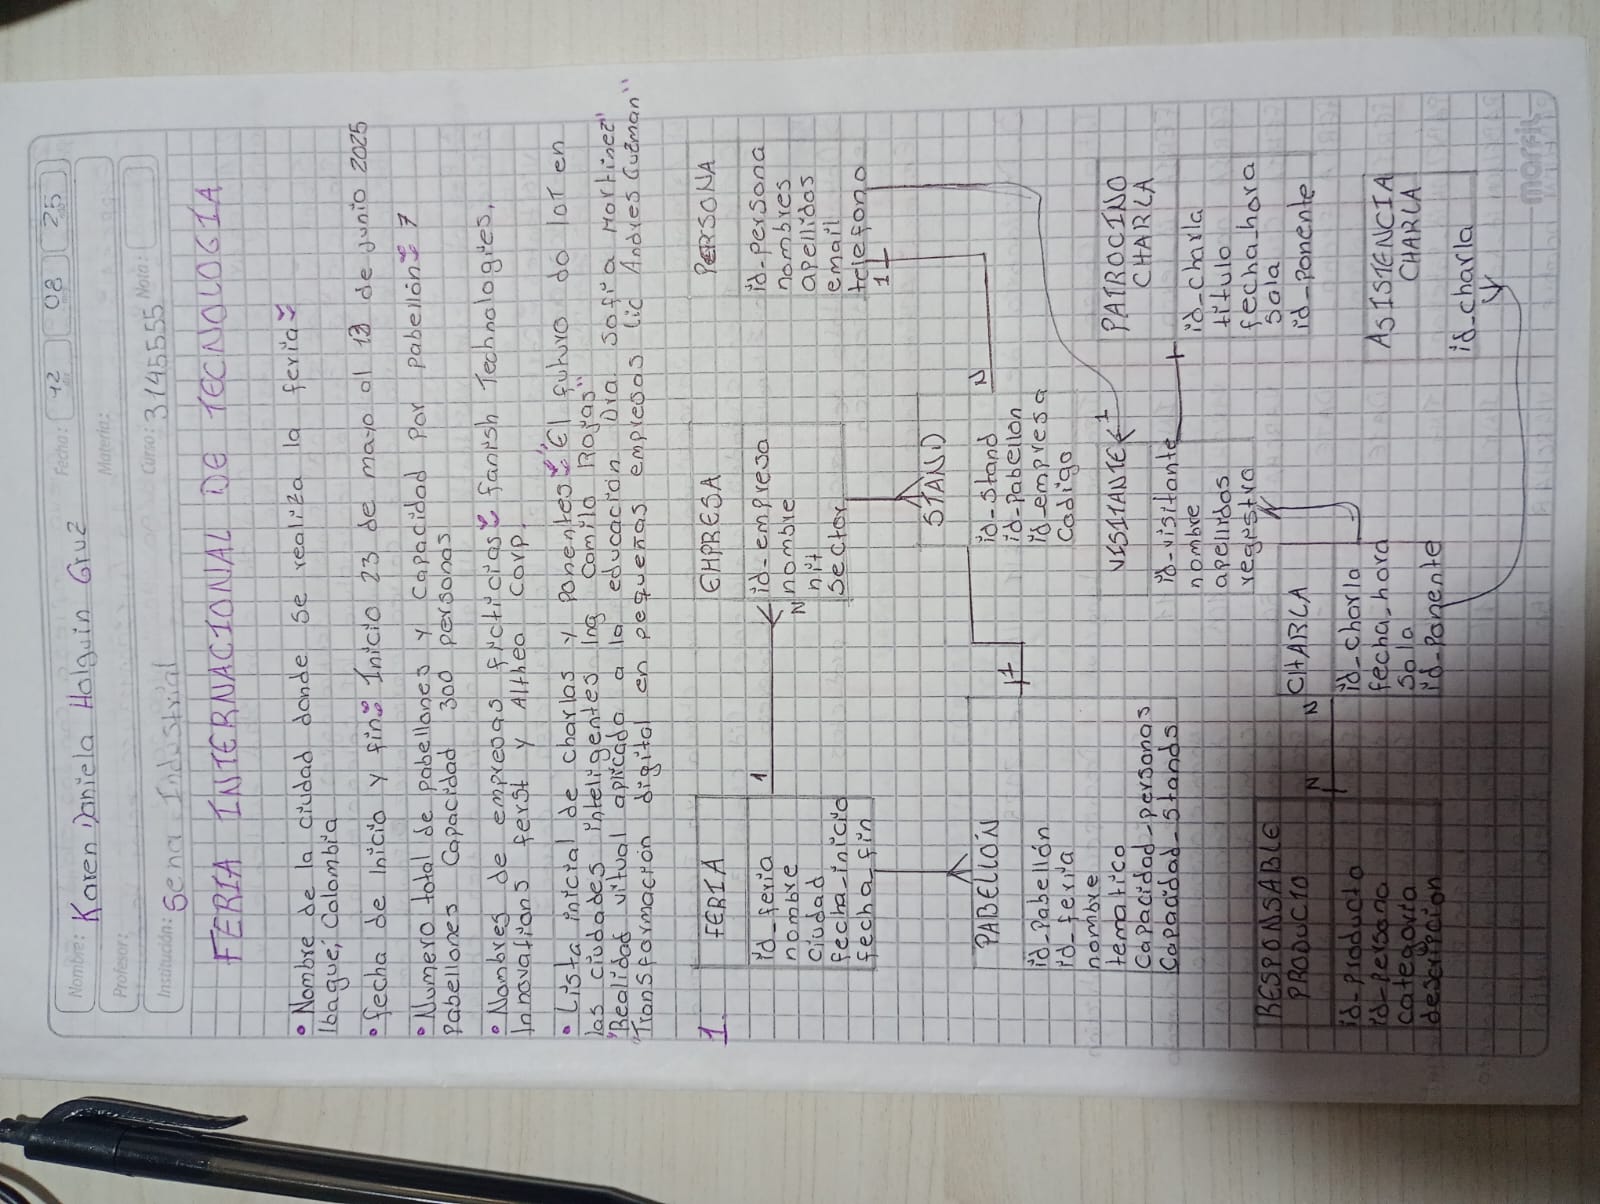 Nombre: Karen Daniela Holguin Cruz
Fecha: 12 08 25
Profesor:
Materia:
Institución: Sena Industrial
Curso: 3145555
Nota:
FERIA INTERNACIONAL DE TECNOLOGIA
• Nombre de la ciudad donde se realiza la feria:
Ibagué, Colombia
• fecha de inicio y fin: Inicio 23 de mayo al 12 de junio 2025
• Numero total de pabellones y capacidad por pabellón: 7
Pabellones Capacidad 300 personas
• Nombres de empresas ficticias: fanish Technologies,
Innovations ferst y Althea Corp.
• Lista inicial de charlas y ponentes: "El futuro do IoT en
las ciudades inteligentes Ing Camilo Rojas"
"Realidad vitual aplicado a la educación Dra. Sofia Martinez"
"Transformación digital en pequenas empresas lic Andres Guzman"
1.
FERIA
id_feria
nombre
ciudad
fecha_inicio
fecha_fin
1
N
EMPRESA
id_empresa
nombre
nit
Sector
PERSONA
id-persona
nombres
apellidos
email
telefono
1
PABELLÓN
id_Pabellón
id_feria
nombre
tematico
capacidad-personas
Capacidad_Stands
1
STAND
id-stand
id-pabellon
id_empresa
Codigo
N
VISITANTE
1
id-visitante
nombre
apellidos
registro
PATROCINO
CHARLA
id_charla
titulo
fecha_hora
Sala
id_ponente
RESPONSABLE
PRODUCTO
id_Producto
id_Persona
categoría
descripcion
N
N
CHARLA
id_charla
fecha_hora
Sala
id_Ponente
ASISTENCIA
CHARLA
id_charla
norma